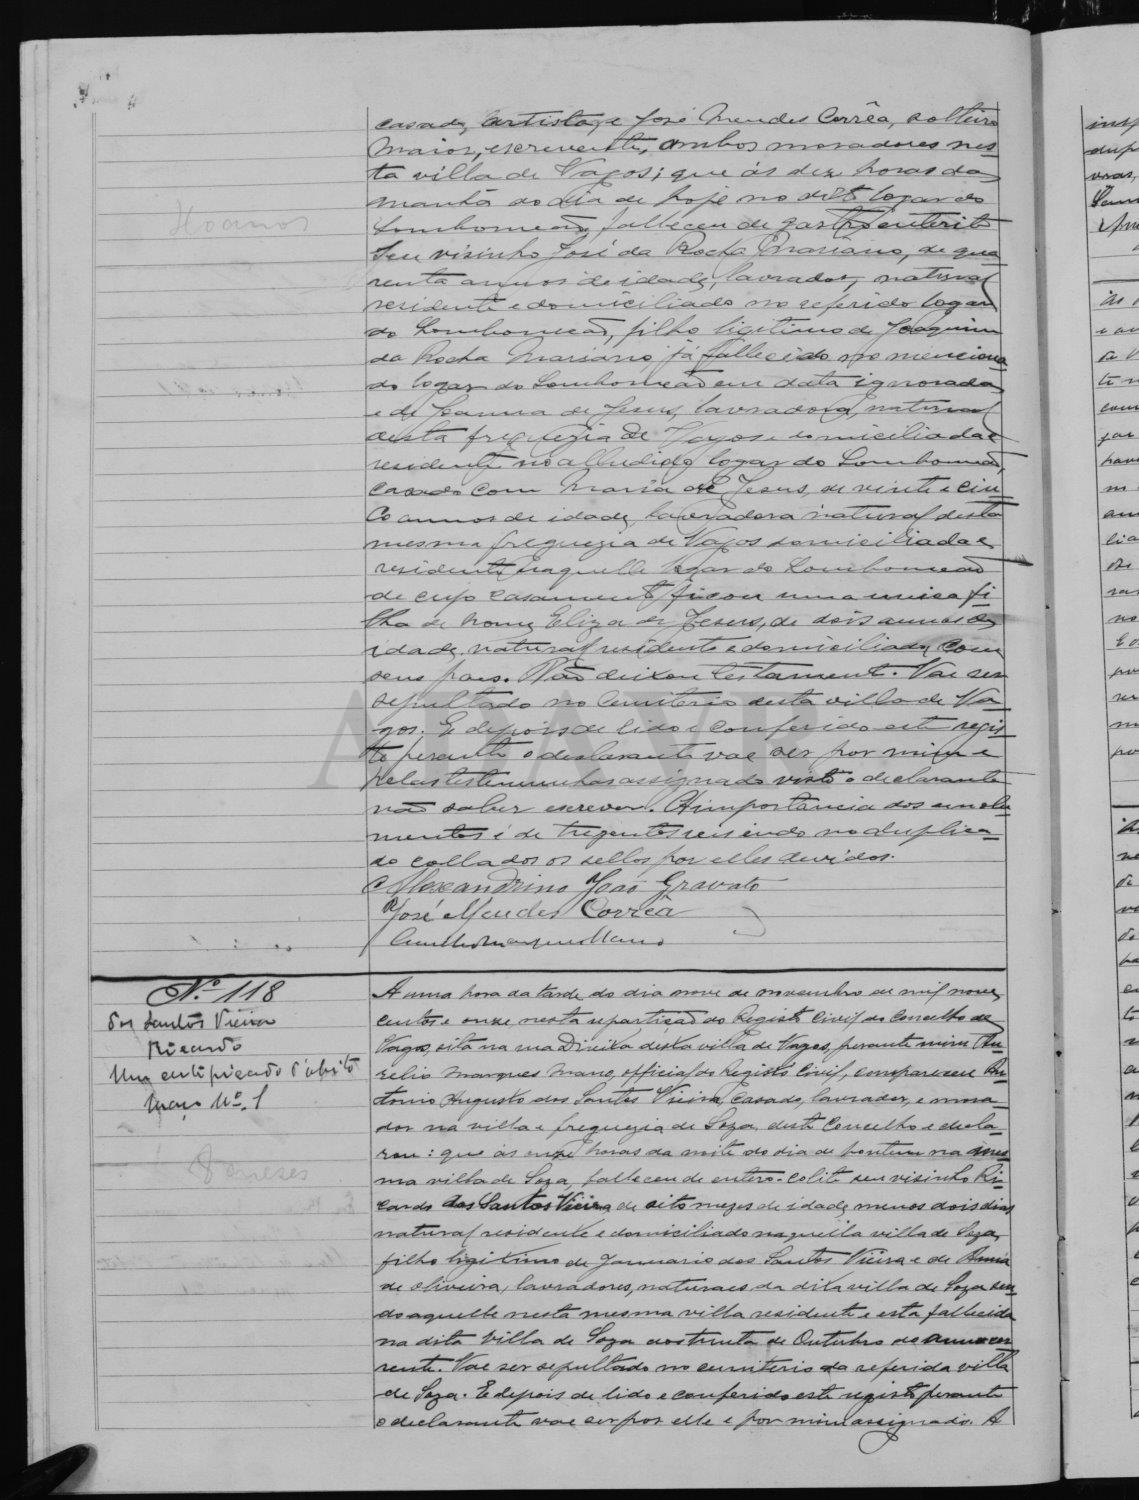 casado, artista, e José Mendes Corrêa, solteiro
maior, escrevente, ambos moradores nes-
ta villa de Vagos; que ás dez horas da
manhã do dia de hoje no dito logar do
Lombomeão, falleceu de gastro enterite
seu visinho José da Rocha Mariano, de qua-
renta annos de idade, lavrador, natural
residente e domiciliado no referido logar
do Lombomeão, filho ligitimo de Joaquim
da Rocha Mariano, já fallecido no menciona-
do logar do Lombomeão em data ignorada
e de Joanna de Jesus, lavradora, natural
desta freguezia de Vagos e domiciliada e
residente no alludido logar do Lombomeão,
casado com Maria de Jesus, de vinte e cin-
co annos de idade, lavradora natural desta
mesma freguezia de Vagos domiciliada e
residente naquelle logar do Lombomeão
de cujo casamento ficou uma unica fi-
lha de nome Eliza de Jesus, de dois annos de
idade, natural residente e domiciliada com
seus paes. Não deixou testamento. Vae ser
sepultado no cemiterio desta villa de Va-
gos. E depois de lido e conferido este regis-
to perante o declarante vae ser por mim e
pelas testemunhas assignado visto o declarante
não saber escrever. A importancia dos emolu-
mentos é de trezentos reis indo no duplica-
do collados os sellos por elles devidos.
Alexandrino João Gravato
José Mendes Corrêa
40 annos
Nº 118
dos Santos Vieira
Ricardo
Um certificado d'obito
Maço Nº 1
8 meses
A uma hora da tarde do dia nove de novembro de mil nove-
centos e onze, nesta repartição do Registo Civil do Concelho de
Vagos, sita na rua Direita desta villa de Vagos, perante mim Au-
relio Marques Mano, official do Registo Civil, compareceu An-
tonio Augusto dos Santos Vieira, casado, lavrador, e mora-
dor na villa e freguezia de Soza, deste Concelho e decla-
rou: que ás onze horas da noite do dia de hontem na mes-
ma villa de Soza, falleceu de entero-colite seu visinho Ri-
cardo dos Santos Vieira de oito mezes de idade menos dois dias
natural residente e domiciliado naquella villa de Soza,
filho ligitimo de Januario dos Santos Vieira e de Anna
de Oliveira, lavradores, naturaes da dita villa de Soza sen-
do aquelle nesta mesma villa residente e esta fallecida
na dita villa de Soza aos trinta de Outubro do anno cor-
rente. Vae ser sepultado no cemiterio da referida villa
de Soza. E depois de lido e conferido este registo perante
o declarante vae ser por elle e por mim assignado. A